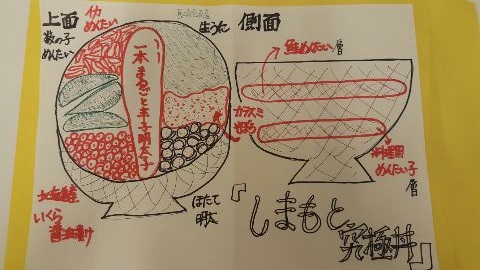 上面
イカ
めんたい
数の子
めんたい
生うに
側面
鮭めんたい層
一本まるごと辛子明太子
カラスミ
料理用
めんたい子
層
いくら
醤油漬け
ほたて
明太
『しまもと
究極丼』